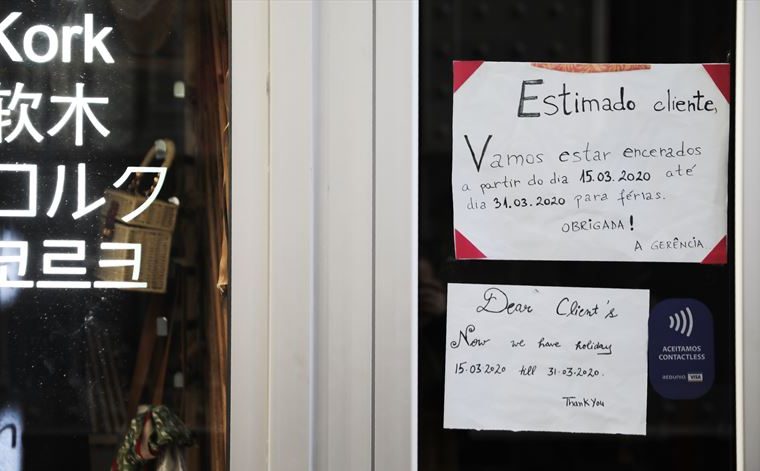 Kork
软木
コルク
코르크
Estimado cliente,
Vamos estar encerados
a partir do dia 15.03.2020 até
dia 31.03.2020 para férias.
OBRIGADA!
A GERÊNCIA
Dear Client's
Now we have holiday
15.03.2020 till 31.03.2020.
Thank you
ACEITAMOS
CONTACTLESS
REDUNIQ VISA